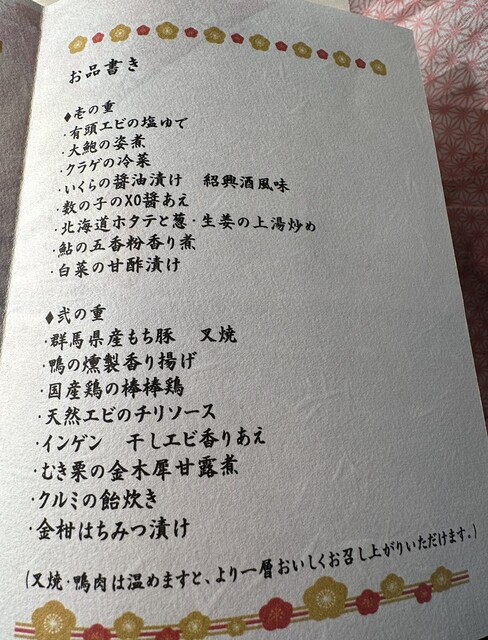 お品書き
◆壱の重
・有頭エビの塩ゆで
・大鮑の姿煮
・クラゲの冷菜
・いくらの醤油漬け　紹興酒風味
・数の子のXO醤あえ
・北海道ホタテと葱・生姜の上湯炒め
・鮎の五香粉香り煮
・白菜の甘酢漬け
◆弐の重
・群馬県産もち豚　叉焼
・鴨の燻製香り揚げ
・国産鶏の棒棒鶏
・天然エビのチリソース
・インゲン　干しエビ香りあえ
・むき栗の金木犀甘露煮
・クルミの飴炊き
・金柑はちみつ漬け
(叉焼・鴨肉は温めますと、より一層おいしくお召し上がりいただけます。)